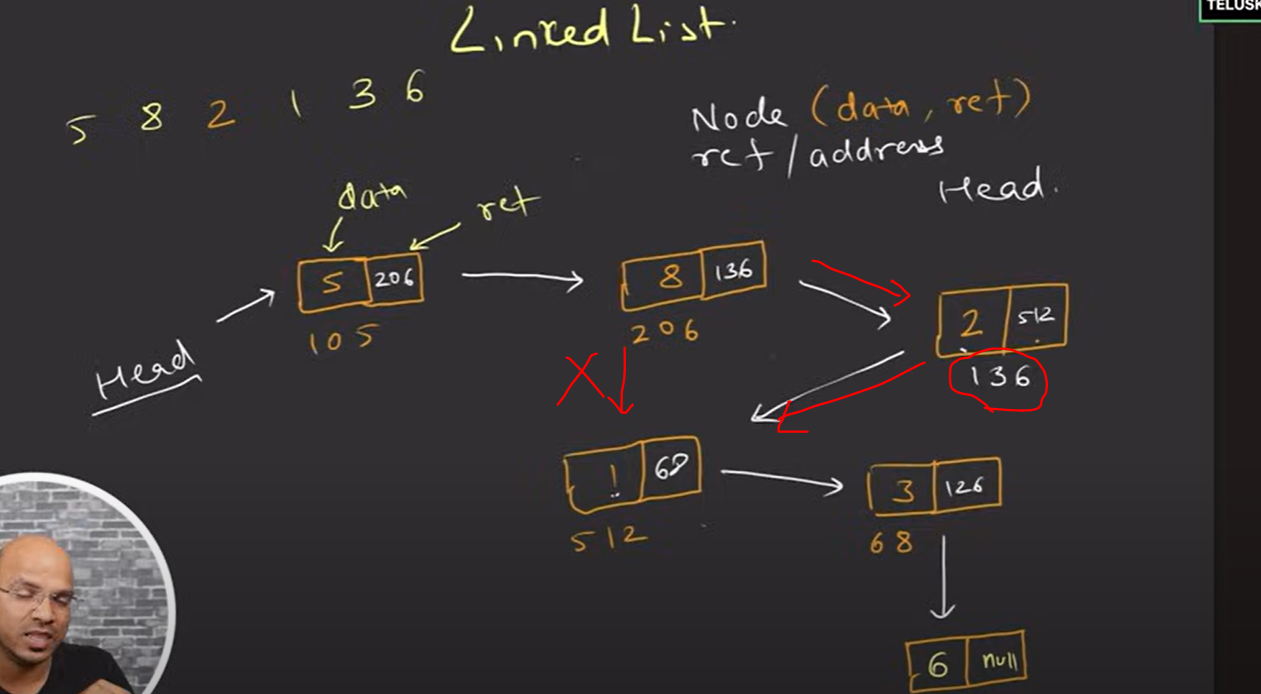 TELUSK
Linked List.
5 8 2 1 3 6
Node (data, ref)
ref/address
Head.
data
ref
5 206
105
8 136
206
2 512
136
Head
X
1 68
512
3 126
68
6 null